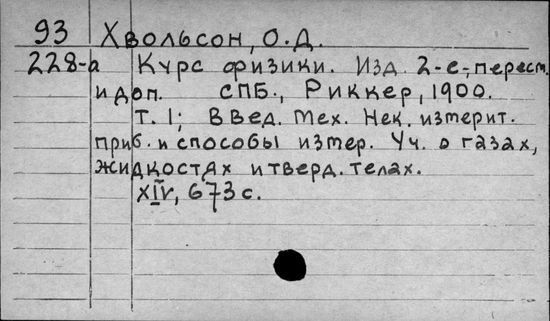 93 Хвольсон, О.Д.
228-а Курс физики. Изд. 2-е, перест.
и доп. СПБ., Риккер, 1900.
Т. 1; Введ. Мех. Нек. измерит.
приб. и способы измер. Уч. о газах,
жидкостях и тверд. телах.
XIV, 673 с.